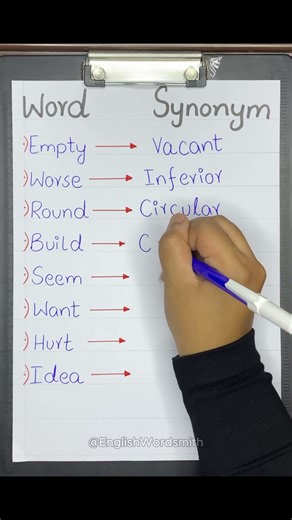 Word Synonym
:) Empty → Vacant
:) Worse → Inferior
:) Round → Circular
:) Build → C
:) Seem →
:) Want →
:) Hurt →
:) Idea →
@EnglishWordsmith